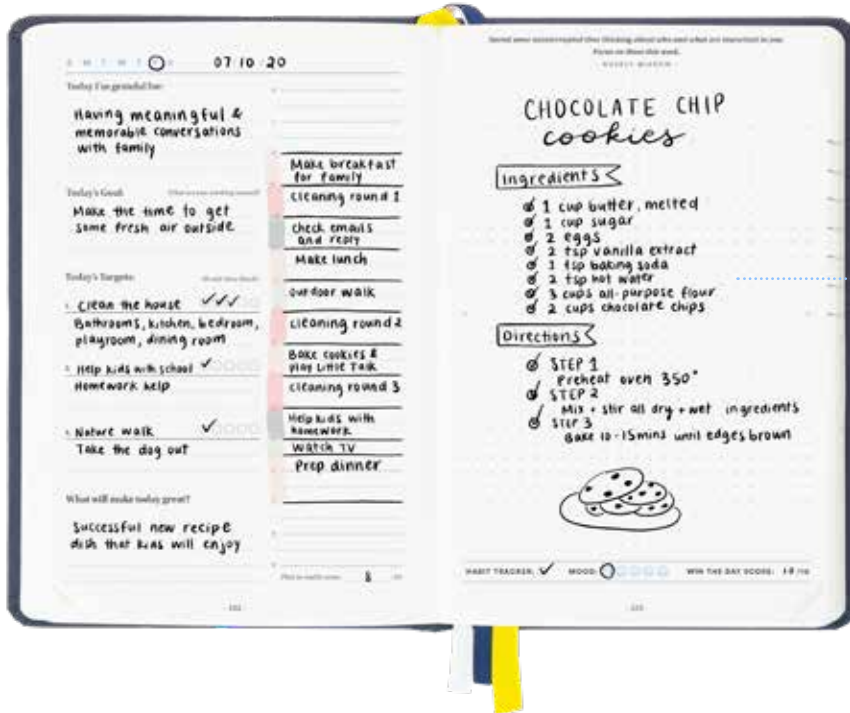 S M T W T F S
07 10 20
Today I'm grateful for:
Having meaningful &
memorable conversations
with family
Today's Goal:
Make the time to get
some fresh air outside
Today's Targets:
1. Clean the house ✓✓✓
Bathrooms, kitchen, bedroom,
playroom, dining room
2. Help kids with school ✓
Homework help
3. Nature walk ✓
Take the dog out
What will make today great?
Successful new recipe
dish that kids will enjoy
Make breakfast
for family
cleaning round 1
check emails
and reply
Make lunch
outdoor walk
cleaning round 2
Bake cookies &
play Little Talk
cleaning round 3
Help kids with
homework
Watch TV
Prep dinner
8
Spend some uninterrupted time thinking about who and what are important to you.
Focus on them this week.
- WEEKLY WISDOM -
CHOCOLATE CHIP
cookies
Ingredients
1 cup butter, melted
1 cup sugar
2 eggs
2 tsp vanilla extract
1 tsp baking soda
2 tsp hot water
3 cups all-purpose flour
2 cups chocolate chips
Directions
STEP 1
Preheat oven 350°
STEP 2
Mix + stir all dry + wet ingredients
STEP 3
Bake 10-15mins until edges brown
HABIT TRACKER: ✓ MOOD: WIN THE DAY SCORE: /10